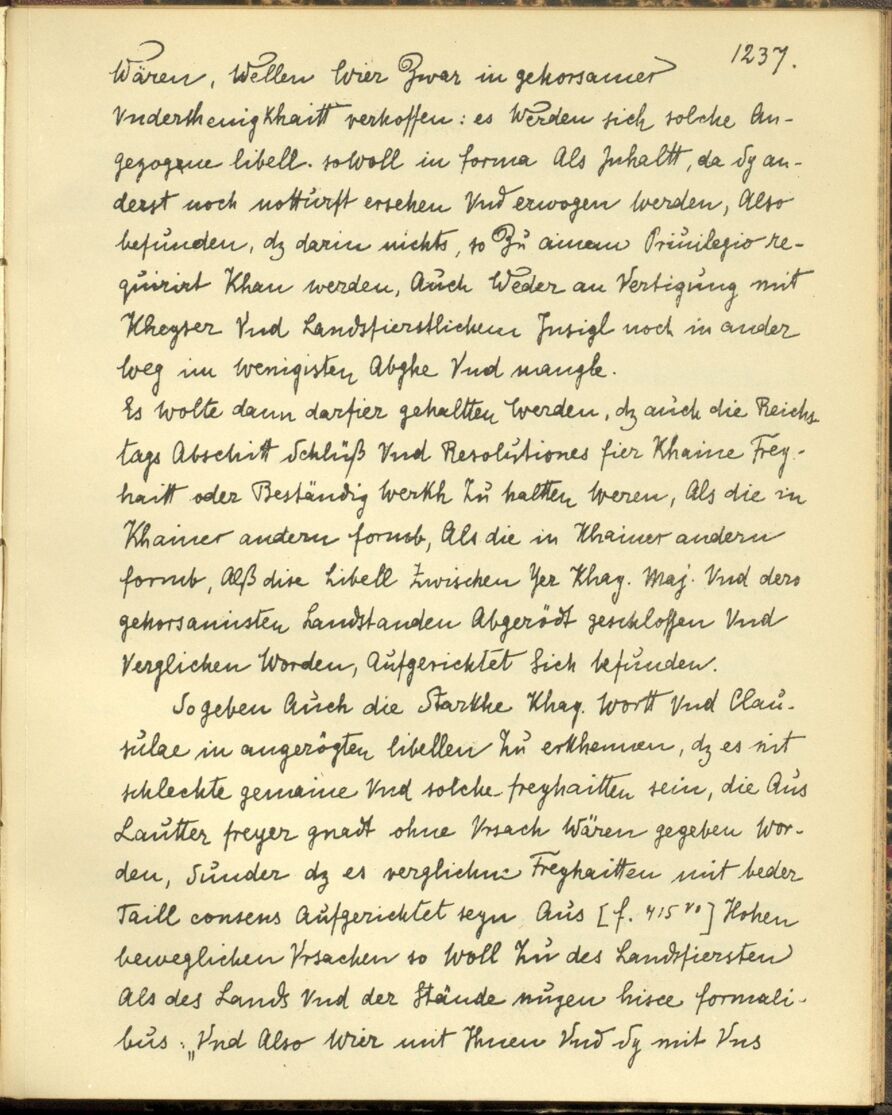 1237.
Wären, Wellen Wier Zwar in gehorsamer
VnderthenigKhaitt verhoffen: es Werden sich solche An-
gezogene libell. soWoll in forma Als Inhaltt, da Sy an-
derst noch notturft ersehen Vnd erwogen Werden, Also
befunden, dz darin nichts, so Zu ainem Priuilegio re-
quirirt Khan werden, Auch Weder an Vertigung mit
Kheyser Vnd Landsfierstlichem Insigl noch in ander
Weg im Wenigisten Abghe Vnd mangle.
Es Wolte dann darfier gehaltten Werden, dz auch die Reichs-
tags Abschitt Schlüß Vnd Resolutiones fier Khaine Frey-
haitt oder Beständig Werkh Zu haltten Weren, Als die in
Khainer andern formb, Als die in Khainer andern
formb, Alß dise Libell Zwischen Yer Khay. Maj. Vnd dero
gehorsamisten Landstanden Abgerödt geschlossen Vnd
Verglichen Worden, Aufgerichtet Sich befunden.
So geben Auch die Starkhe Khay. Wortt Vnd Clau-
sulae in angerögten libellen Zu erkhennen, dz es nit
schlechte gemaine Vnd solche freyhaitten sein, die Aus
Lautter freyer gnadt ohne Vrsach Wären gegeben Wor-
den, Sunder dz es verglichne Freyhaitten mit beder
Taill consens Aufgerichtet seyn Aus [f. 415 vo] Hohen
beweglichen Vrsachen so Woll Zu des Landsfiersten
Als des Lands Vnd der Stände nuzen hisce formali-
bus: „Vnd Also Wier mit Ihnen Vnd Sy mit Vns